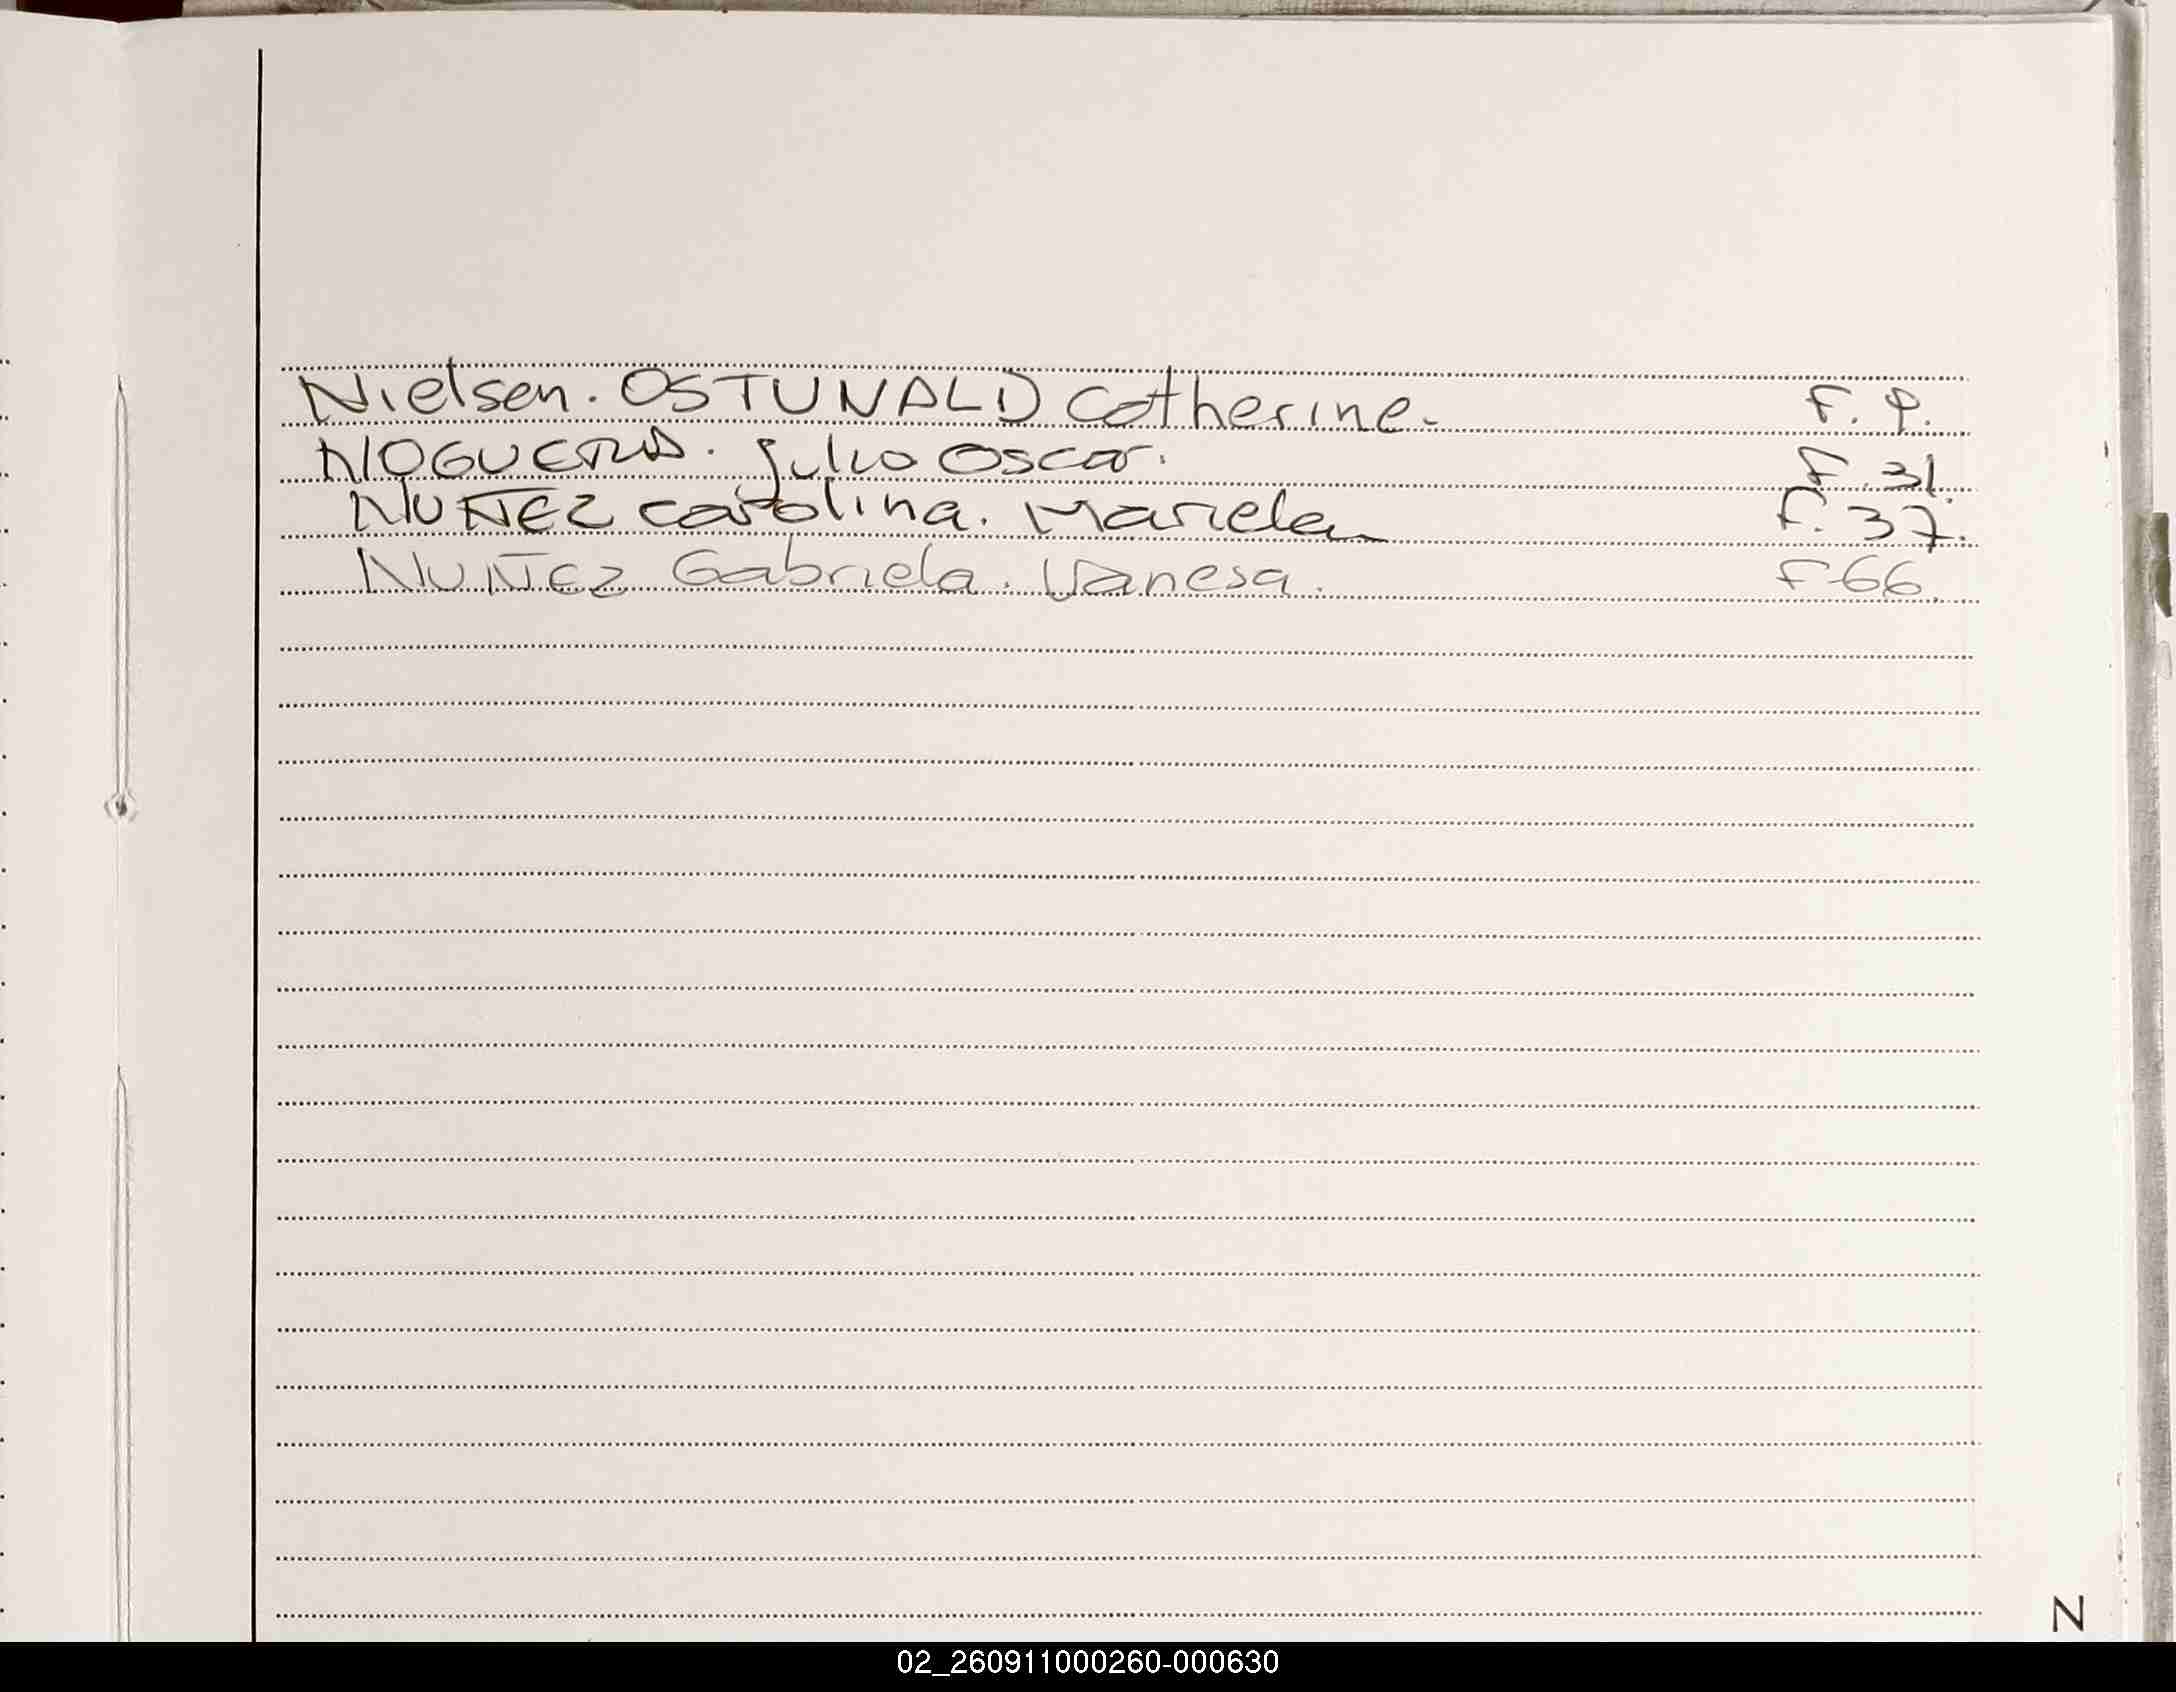 Nielsen. OSTUNALD Catherine. F. 9.
NOGUERA. Julio Oscar. F. 31.
NUÑEZ Carolina. Mariela F. 37.
NUÑEZ Gabriela. Vanesa. F 66.
N
02_260911000260-000630